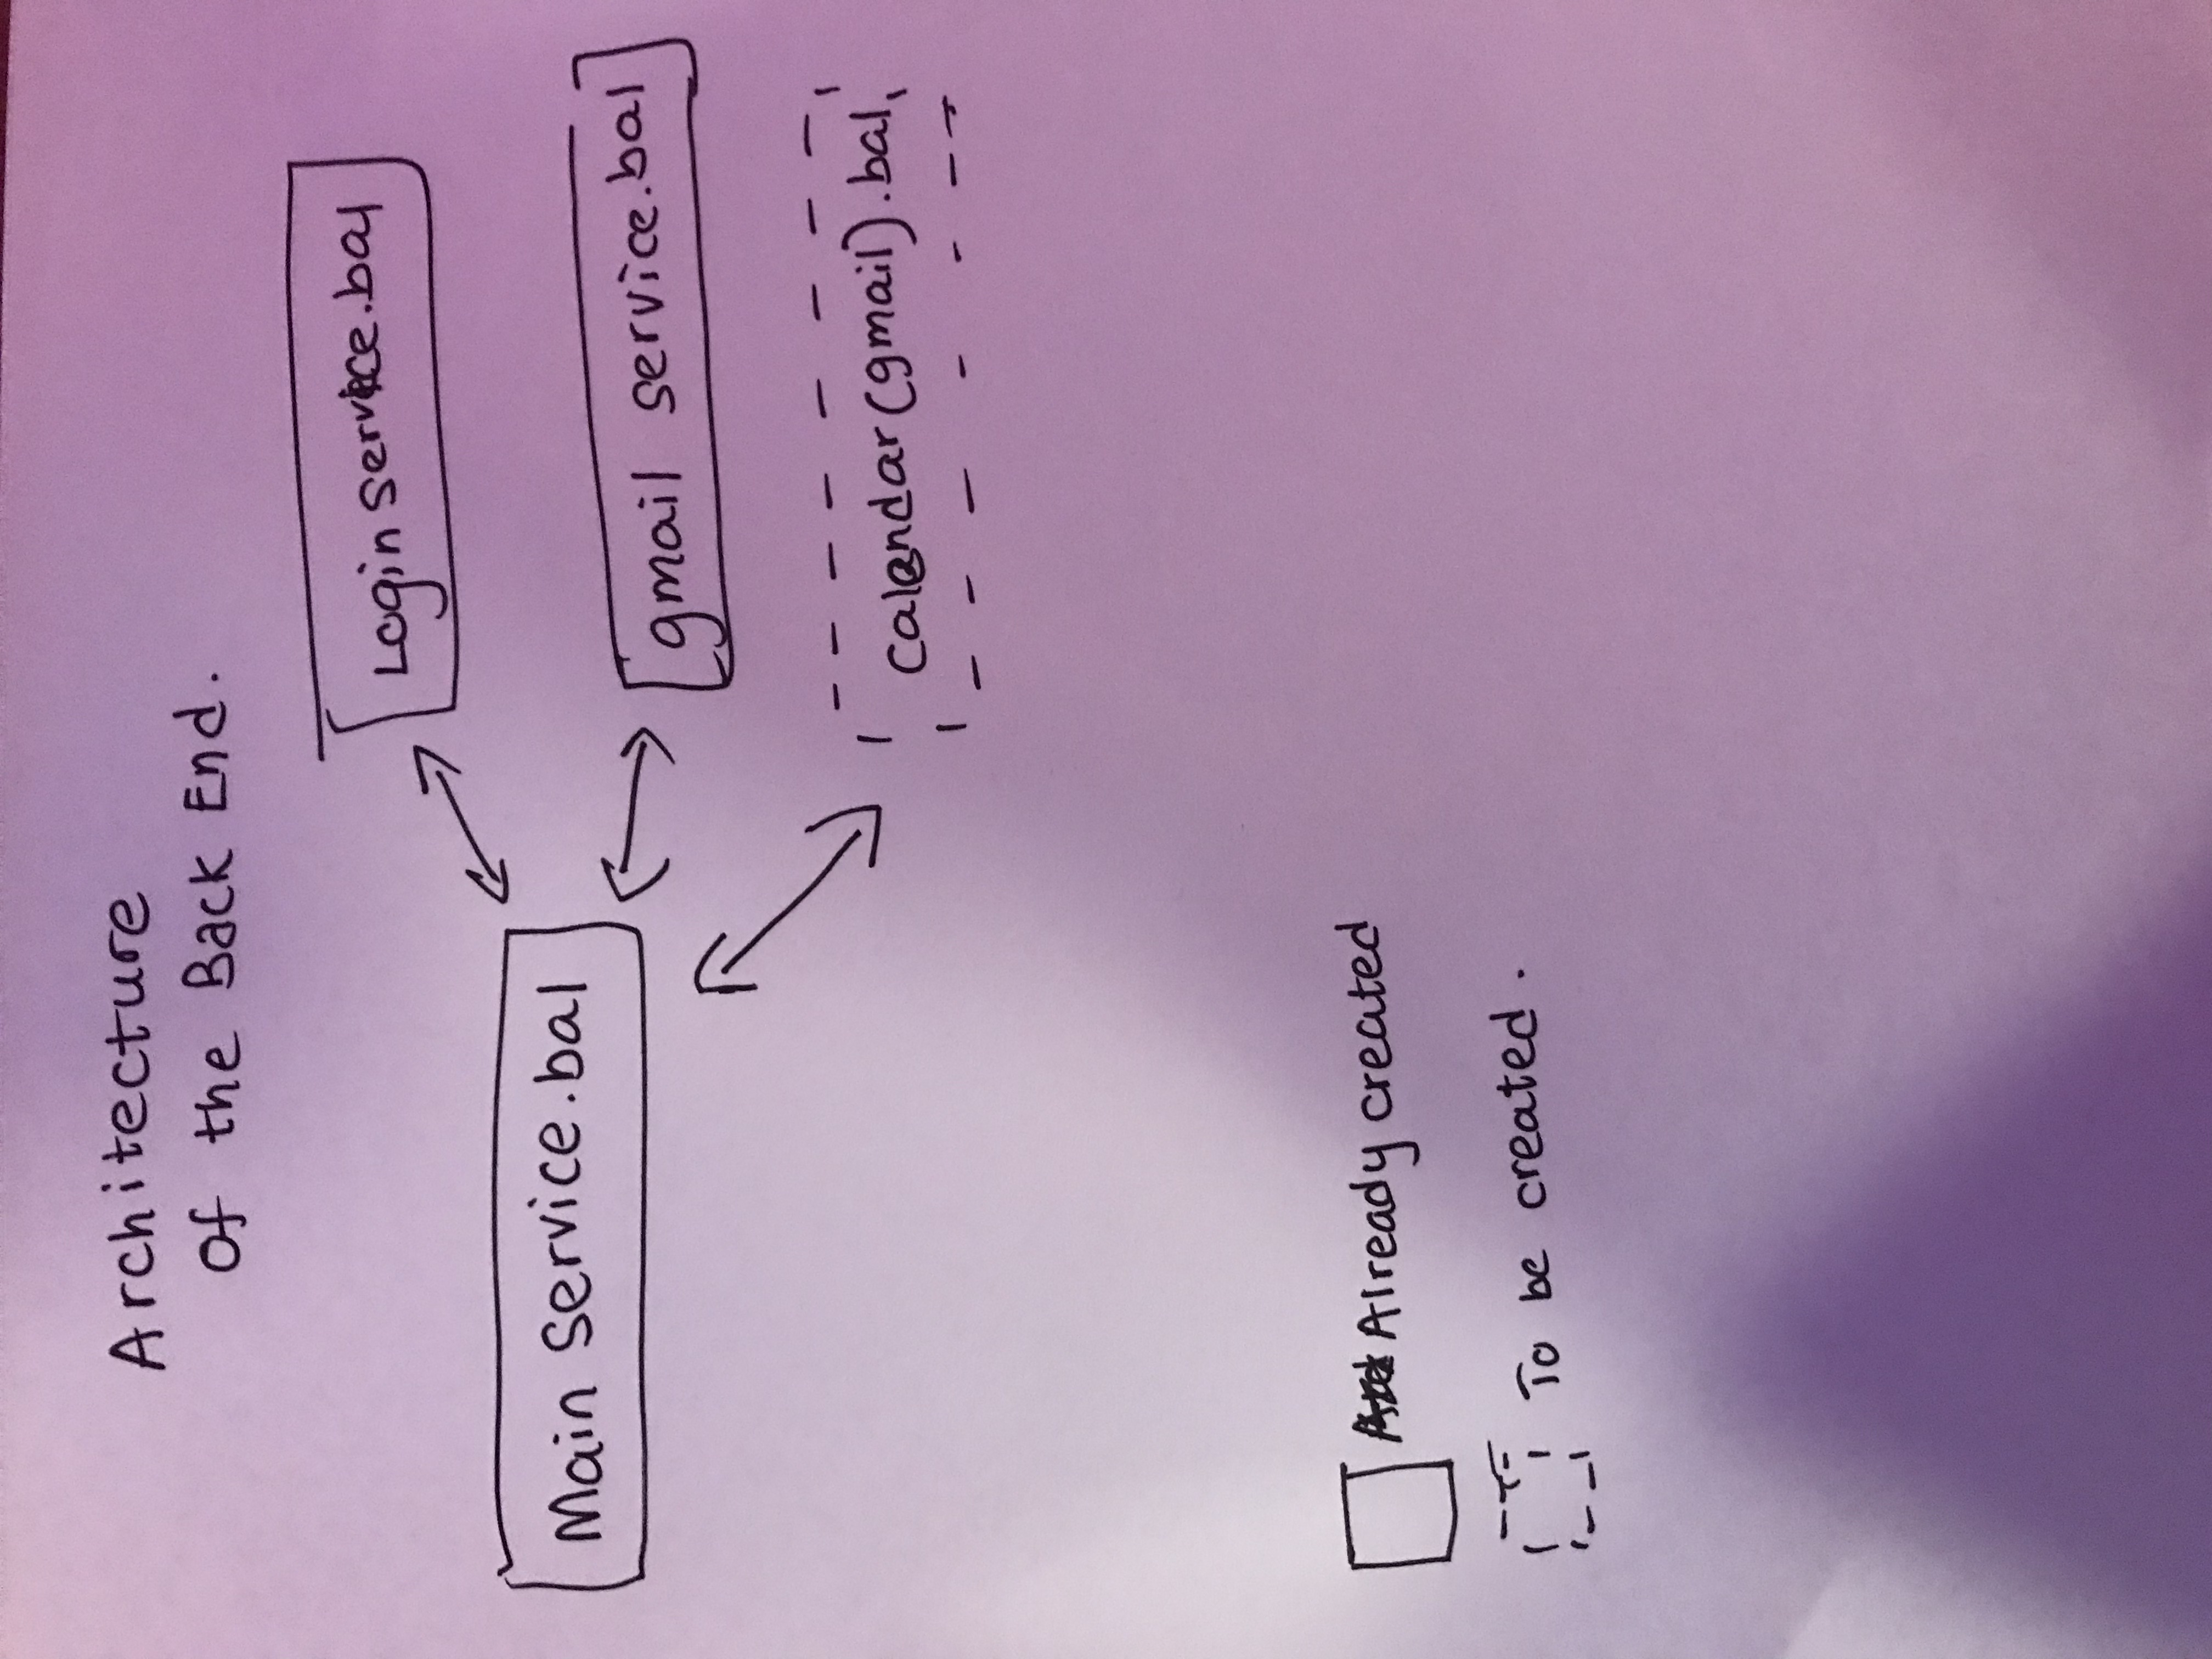 Architecture
Of the Back End.
Login service.bal
Main Service.bal
gmail service.bal
calendar(gmail).bal
Already created
To be created.